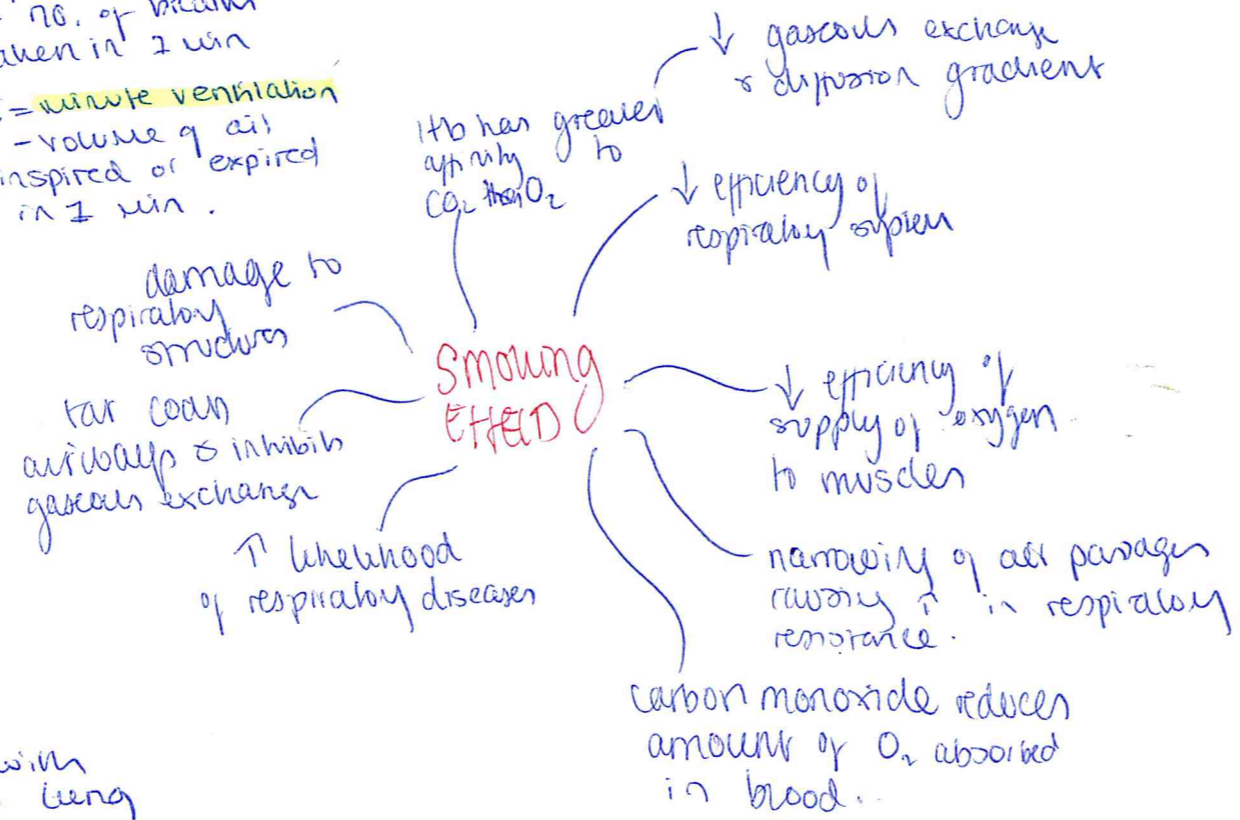 no. of breaths
taken in 1 min
= minute ventilation
- volume of air
inspired or expired
in 1 min.
Hb has greater
affinity to
CO2 than O2
↓ gaseous exchange
& diffusion gradient
↓ efficiency of
respiratory system
damage to
respiratory
structures
SMOKING
EFFECTS
tar coats
airways & inhibits
gaseous exchange
↓ efficiency of
supply of oxygen
to muscles
↑ likelihood
of respiratory diseases
narrowing of air passages
causing ↑ in respiratory
resistance.
carbon monoxide reduces
amount of O2 absorbed
in blood.
with
lung